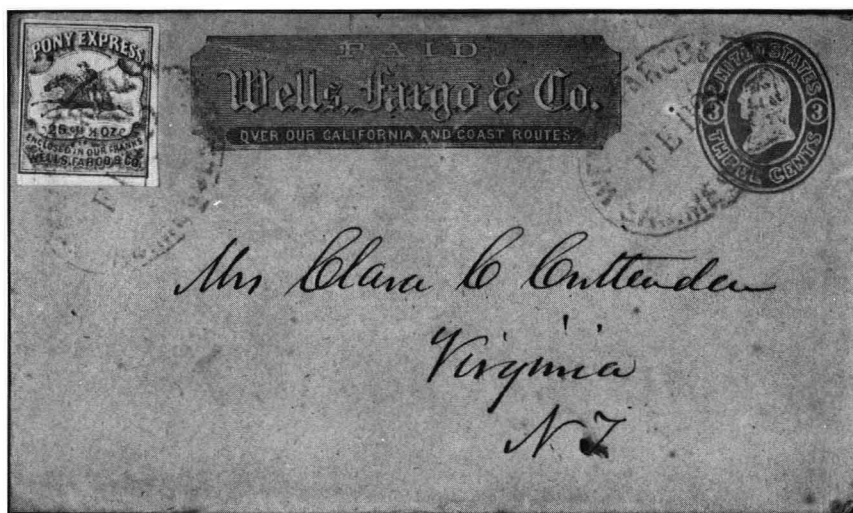 PONY EXPRESS
25 cts ½ OZ.
ENCLOSED IN OUR FRANKS
WELLS, FARGO & CO.
PAID
Wells, Fargo & Co.
OVER OUR CALIFORNIA AND COAST ROUTES.
UNITED STATES
3 3
THREE CENTS
FEB
Mrs Clara C Cruttenden
Virginia
N T